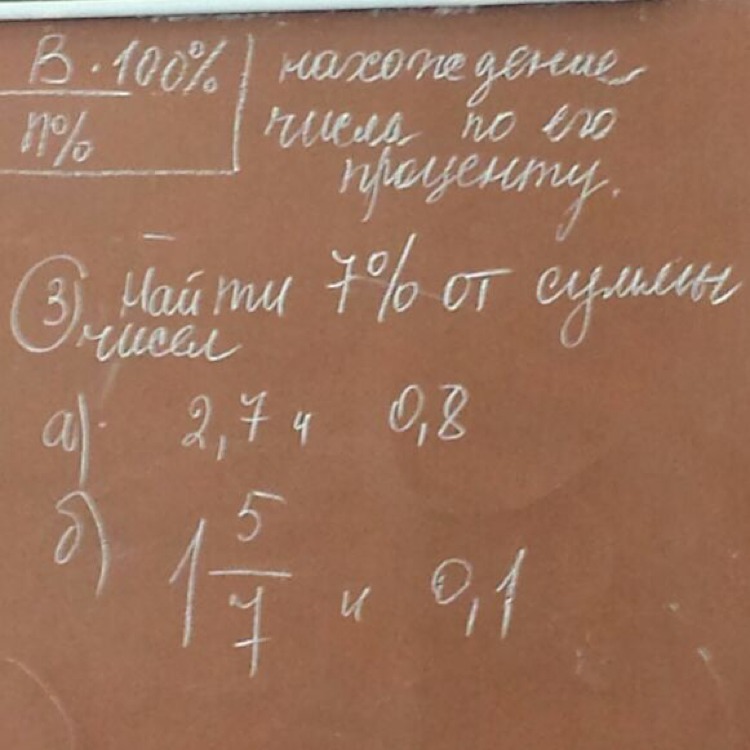 В · 100% нахождение
n% числа по его
проценту.
3) Найти 7% от суммы
чисел
а) 2,7 и 0,8
б) 1 5/7 и 0,1